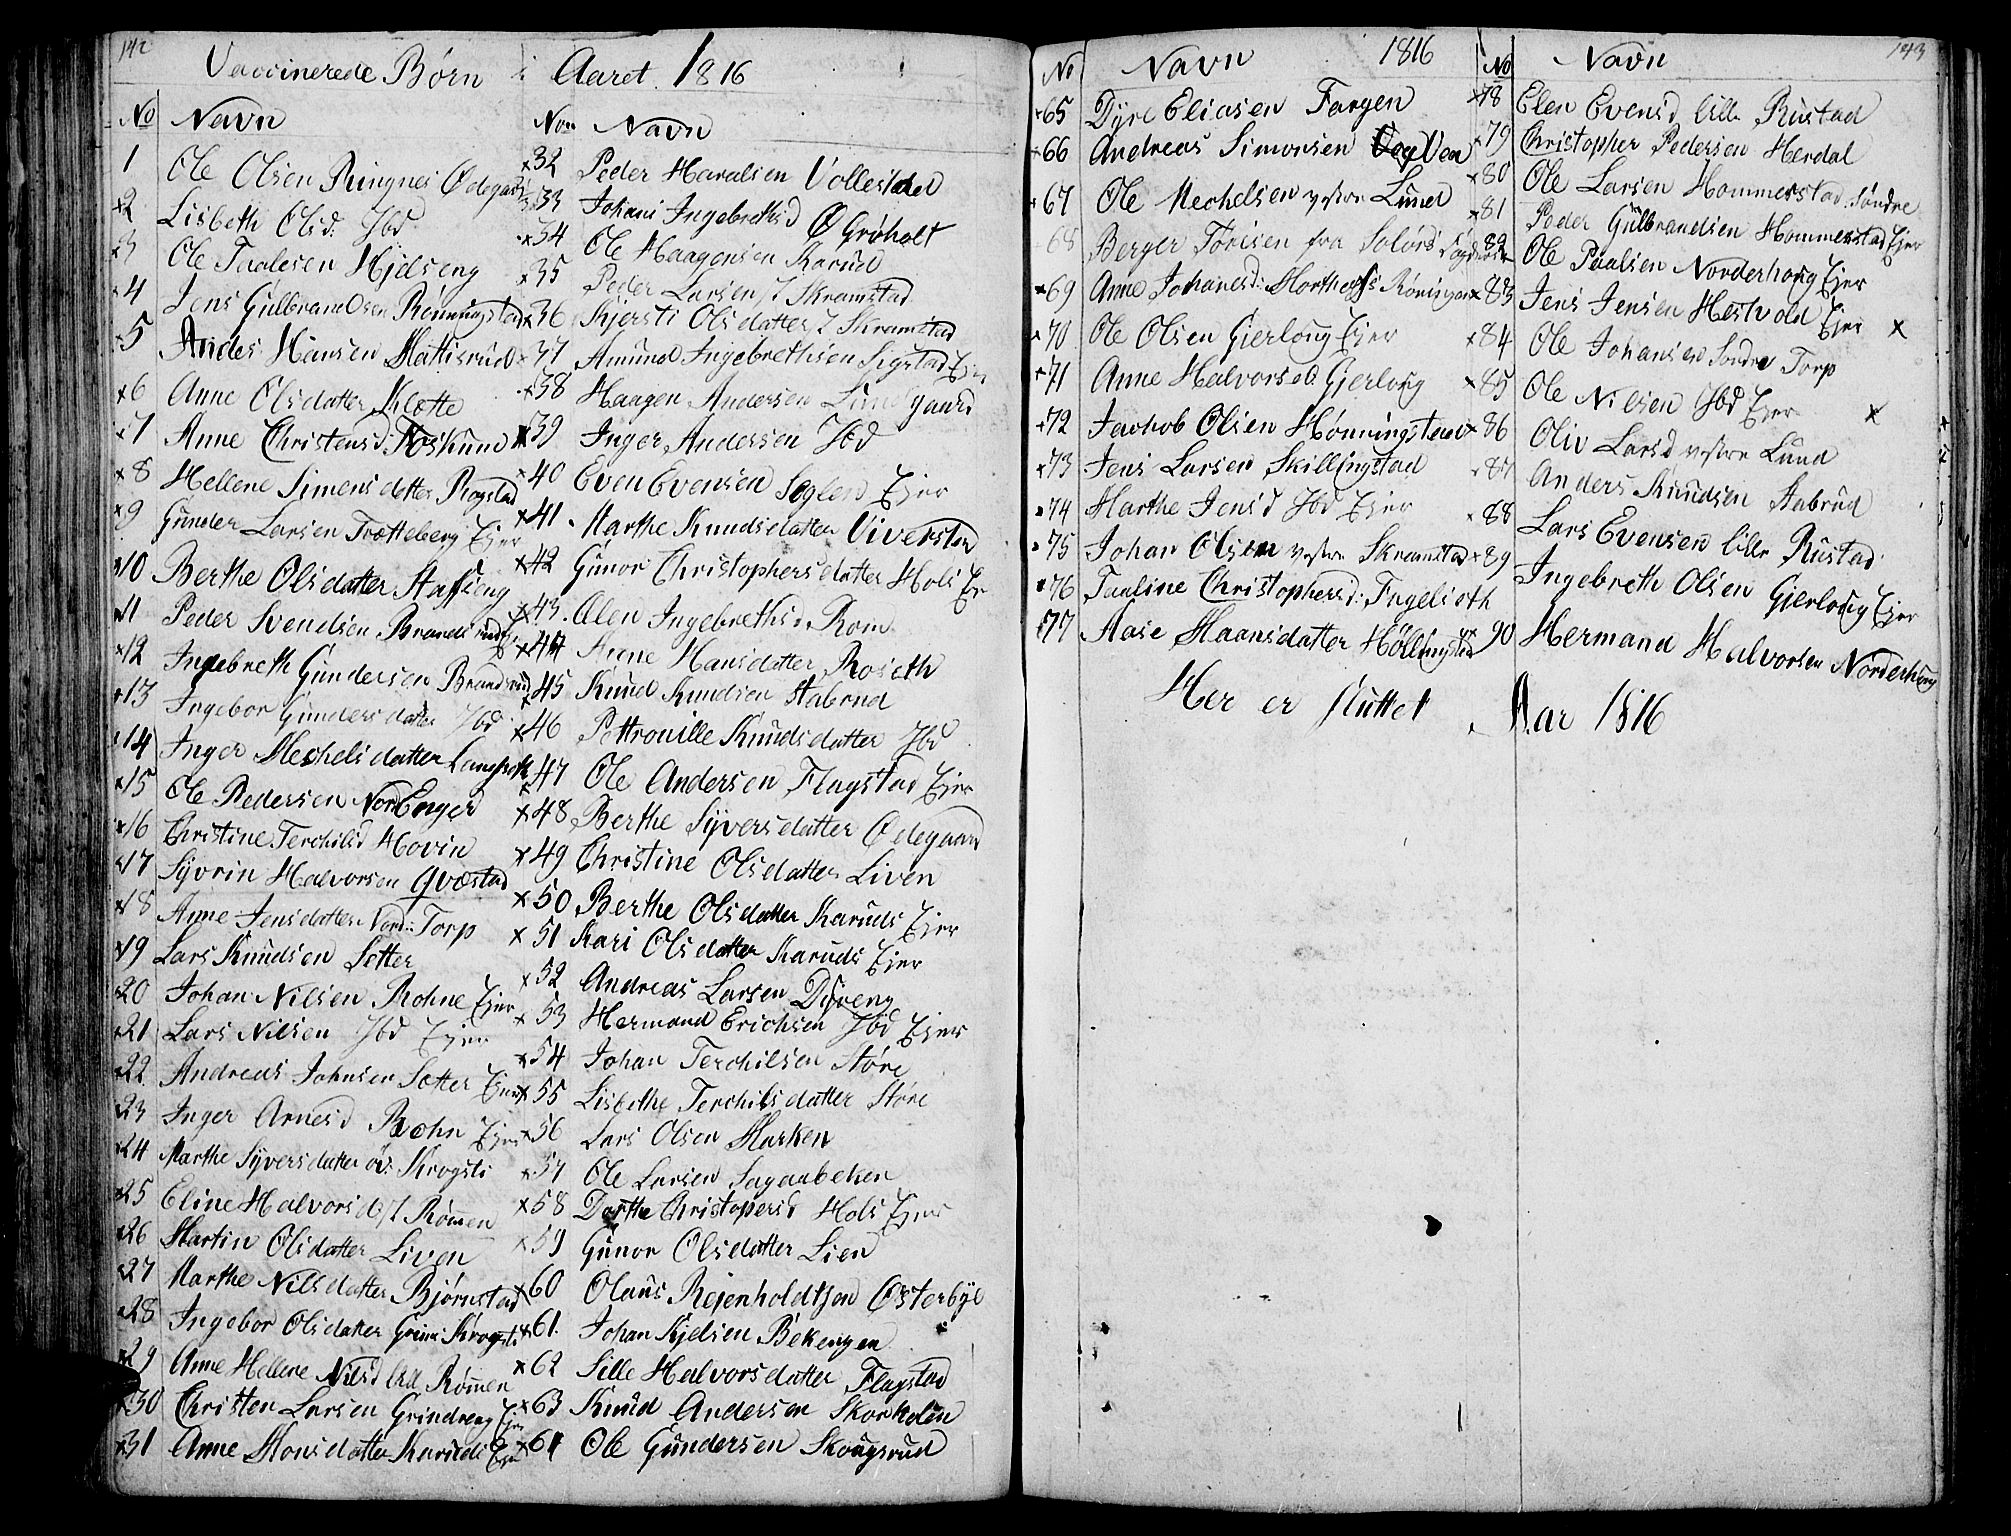 142
Vaccinerede Børn i Aaret 1816
No Navn
1 Ole Olsen Ringnes Ødegard
2 Lisbeth Olsd: Ibd
3 Ole Paalesen Hjelseng
4 Jens Gulbrandsen Rønningstad
5 Andes Hansen Mattisrud
6 Anne Olsdatter Klætte
7 Anne Christensd: Foskum
8 Hellene Simensdatter Rogstad
9 Gunder Larsen Trætteberg Ejer
10 Berthe Olsdatter Stafseng
11 Peder Svendsen Brandsrud
12 Ingebreth Gundersen Brandsrud
13 Ingebor Gundersdatter Ibd
14 Inger Mechelsdatter Langseth
15 Ole Pedersen Nor Enger
16 Christine Terchilsd Hovin
17 Syvrin Halvorsen Qvæstad
18 Anne Jensdatter Nord: Torp
19 Lars Knudsen Sætter
20 Johan Nilsen Rohne Ejer
21 Lars Nilsen Ibd Ejer
22 Andreas Johnsen Sætter Ejer
23 Inger Arnesd Bøhn Ejer
24 Marthe Syversdatter øv: Krogsti
25 Eline Halvorsd Rømen
26 Martin Olsdatter Liven
27 Marthe Nilsdatter Bjørnstad
28 Ingebor Olsdatter Krogsti
29 Anne Hellene Nilsd Rømen
30 Christen Larsen Grindreng Ejer
31 Anne Monsdatter Karuds Ejer
Nom Navn
32 Peder Haralsen Vollestad
33 Johani Ingebrethsd Ø Grøholt
34 Ole Haagensen Karud
35 Peder Larsen Skramstad
36 Kjersti Olsdatter Skramstad
37 Amund Ingebrethsen Sigstad Ejer
38 Haagen Andersen Lundgaard
39 Inger Andersen Ibd
40 Even Evensen Seglen Ejer
41. Marthe Knudsdatter Viversta
42 Gunor Christophersdatter Hols Ejer
43. Alen Ingebrethsd Rom
44 Anne Hansdatter Roseth
45 Knud Knudsen Stabrud
46 Pettronille Knudsdatter Ibd
47 Ole Andersen Flagstad Ejer
48 Berthe Syversdatter Ødegaard
49 Christine Olsdatter Liven
50 Berthe Olsdatter Karuds Ejer
51 Kari Olsdatter Karuds Ejer
52 Andreas Larsen Dyreng
53 Hermand Erichsen Ibd Ejer
54 Johan Terchilsen Støre
55 Lisbethe Terchilsdatter Støre
56 Lars Olsen Harken
57 Ole Larsen Sagaabeken
58 Dorthe Christopersd Hols Ejer
59 Gunor Olsdatter Lien
60 Olaus Rejenholdtsen Østerbye
61. Johan Kjelsen Bekengen
62 Sille Halvorsdatter Flagstad
63 Knud Andersen Skorholen
64 Ole Gundersen Skougsrud
No Navn 1816
65 Dyre Eliasen Fargen
66 Andreas Simonsen Veen
67 Ole Mechelsen vestre Lund
68 Berger Torisen fra Soløer
69 Anne Johanesd:
70 Ole Olsen Gjerlong Ejer
71 Anne Halvorsd: Gjerlong
72 Jachob Olsen Hønningstad
73 Jens Larsen Skillingstad
74 Marthe Jensd Ibd Ejer
75 Johan Olsen vestre Skramstad
76 Pauline Christophersd: Engelseth
77 Aase Haansdatter Høllingstad
No Navn 143
78 Elen Evensd lille Rustad
79 Christopher Pedersen Herdal
80 Ole Larsen Hommerstad Søndre
81 Peder Gulbrandsen Hommerstad Ejer
82 Ole Paalsen Norderhong Ejer
83 Jens Jensen Hestvold Ejer
84 Ole Johansen Søndre Torp
85 Ole Nilsen Ibd Ejer
86 Oliv Larsd vestre Lund
87 Anders Knudsen Stabrud
88 Lars Evensen lille Rustad
89 Ingebreth Olsen Gjerlong Ejer
90 Hermand Halvorsen Norderhong
Her er sluttet Aar 1816